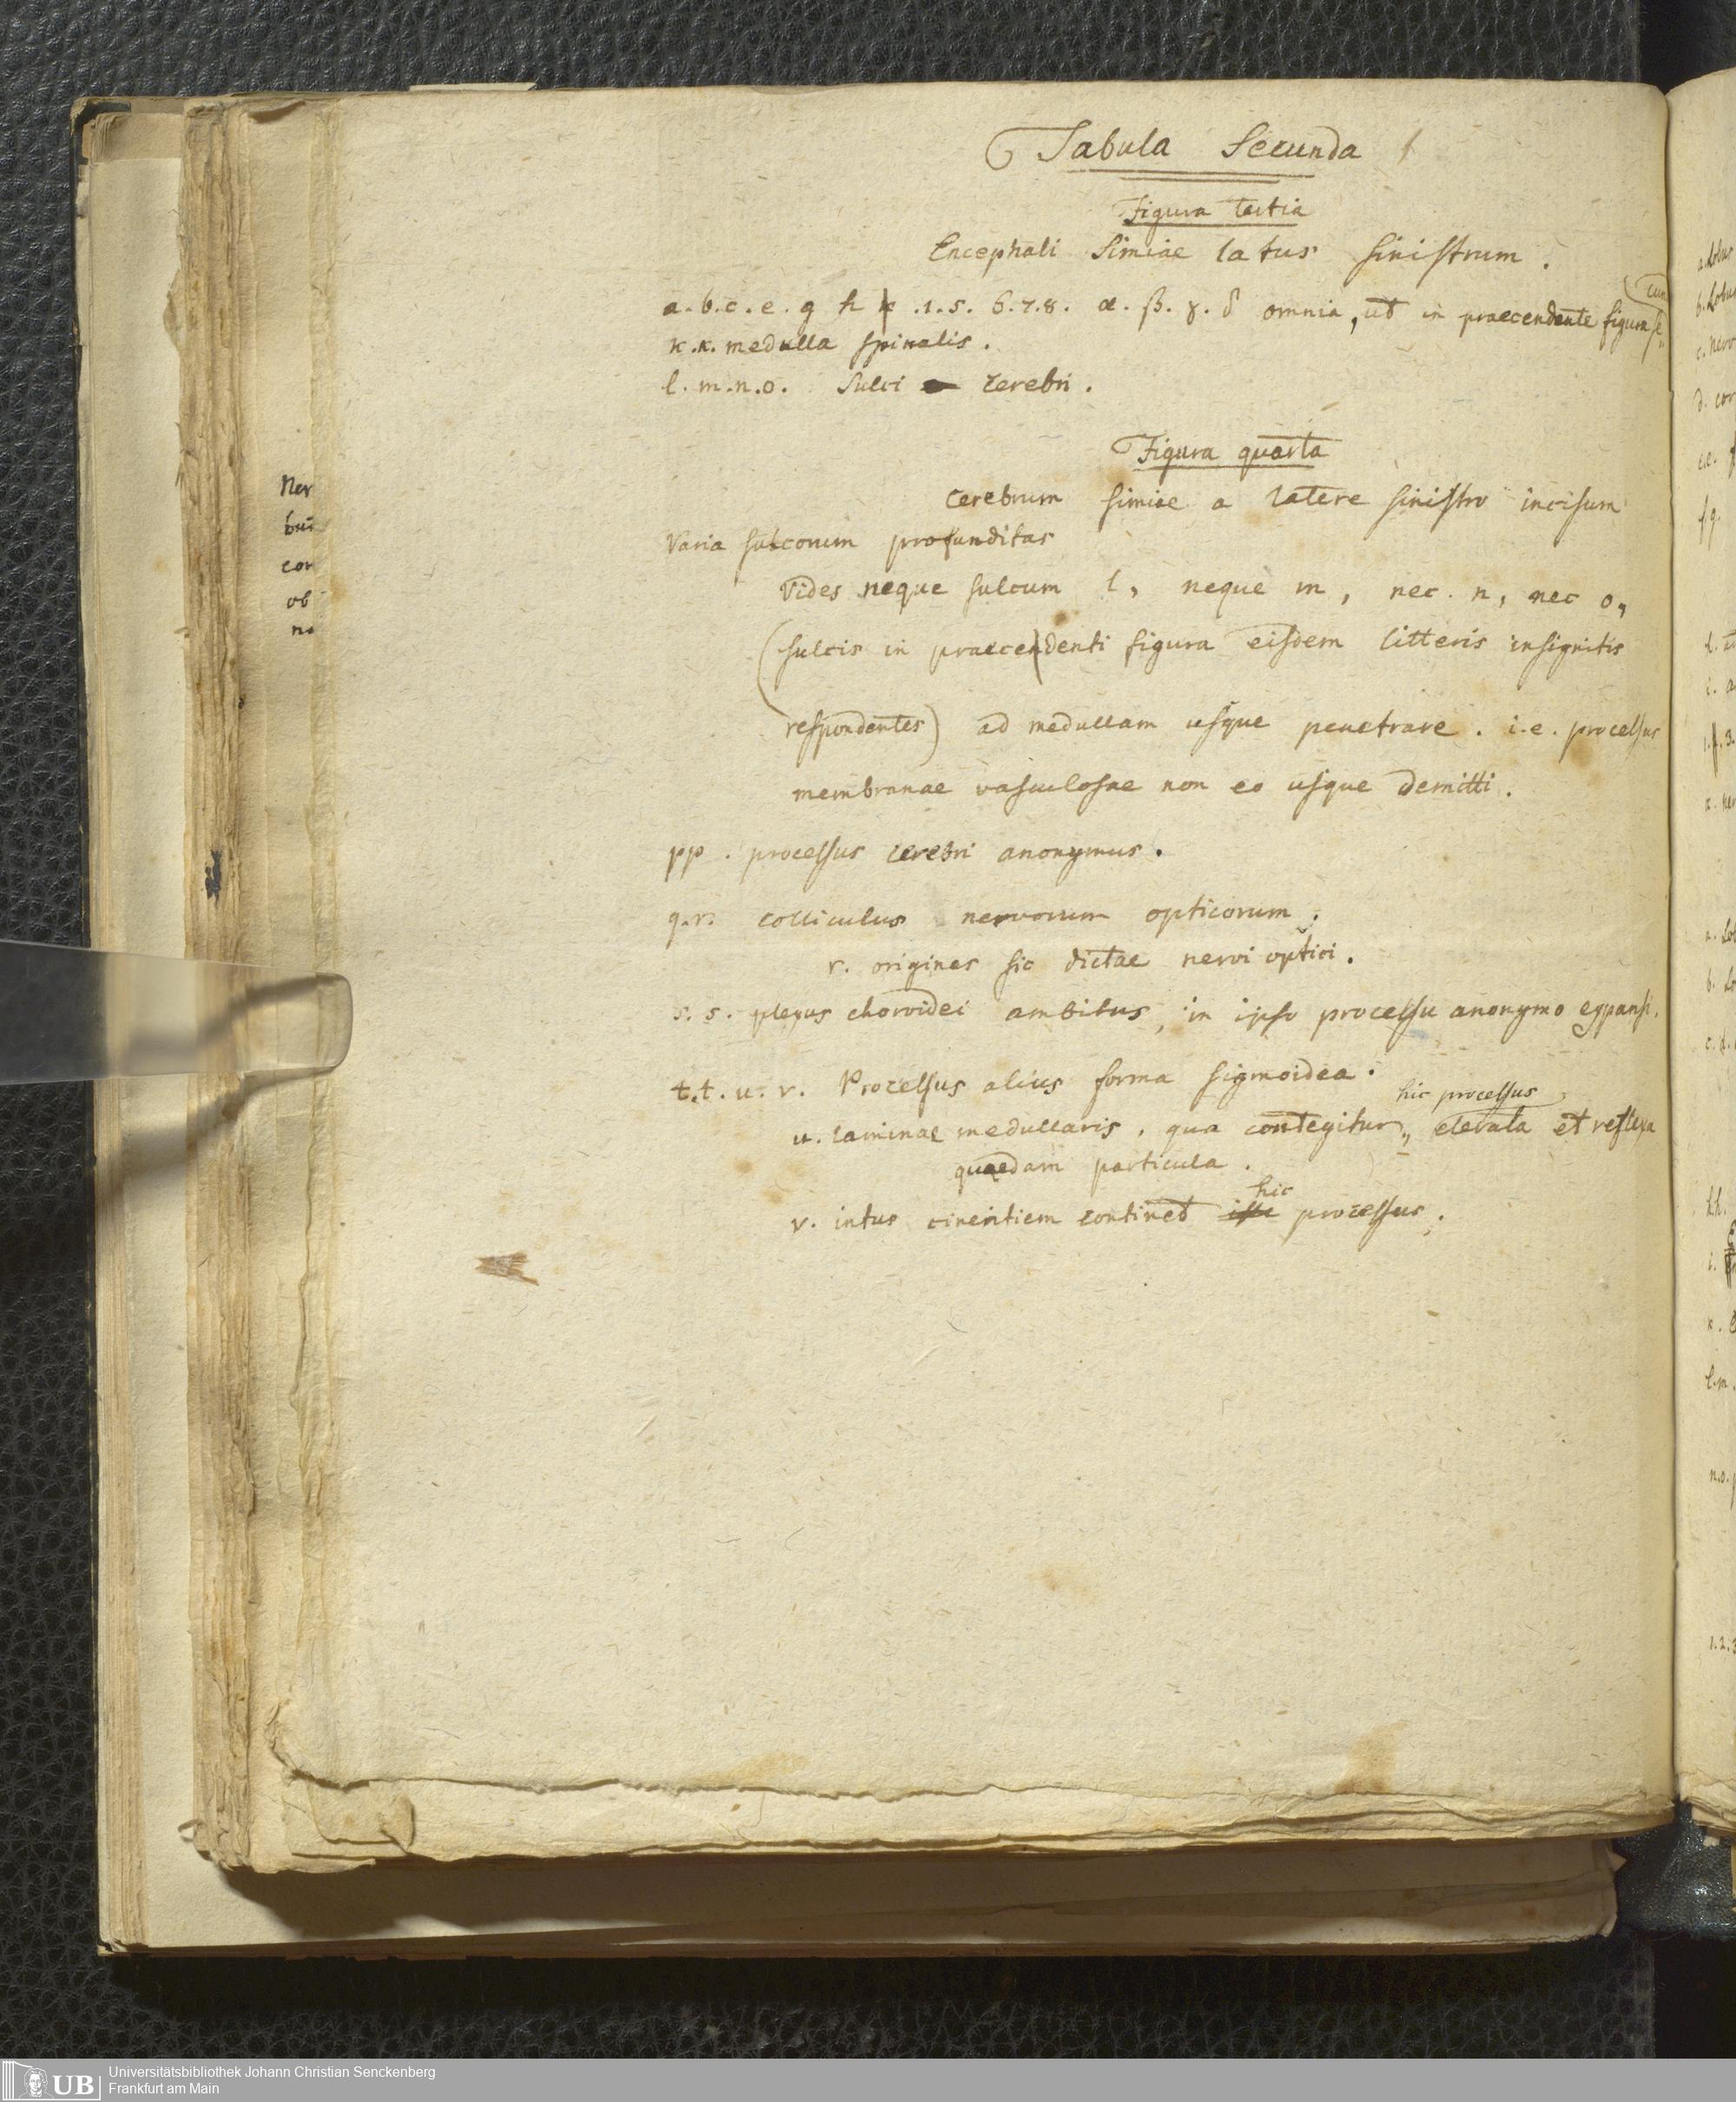 Tabula Secunda
Figura tertia
Encephali Simiae latus sinistrum.
a. b. c. e. g h .1. 5. 6. 7. 8. α. β. γ. δ omnia, ut in praecendente figura
κ.κ. medulla spinalis.
l. m. n. o. Sulci cerebri.
Figura quarta
Cerebrum simiae a latere sinistro incisum
Varia sulcorum profunditas
Vides neque sulcum l, neque m, nec. n, nec o,
(sulcis in praecedenti figura eisdem litteris insignitis
respondentes) ad medullam usque penetrare. i.e. processus
membranae vasculosae non eo usque demitti.
pp. processus cerebri anonymus.
q.r. colliculus nervorum opticorum;
r. origines sic dictae nervi optici.
s. s. plexus choroidei ambitus, in ipso processu anonymo expansi.
t.t. u. v. Processus alius forma sigmoidea:
hic processus
u. laminae medullaris, qua contegitur, elevata et reflexa
quaedam particula.
hic
v. intus cineritiem continet iste processus.
Ner
bus
cor
ob
Universitätsbibliothek Johann Christian Senckenberg
Frankfurt am Main
UB